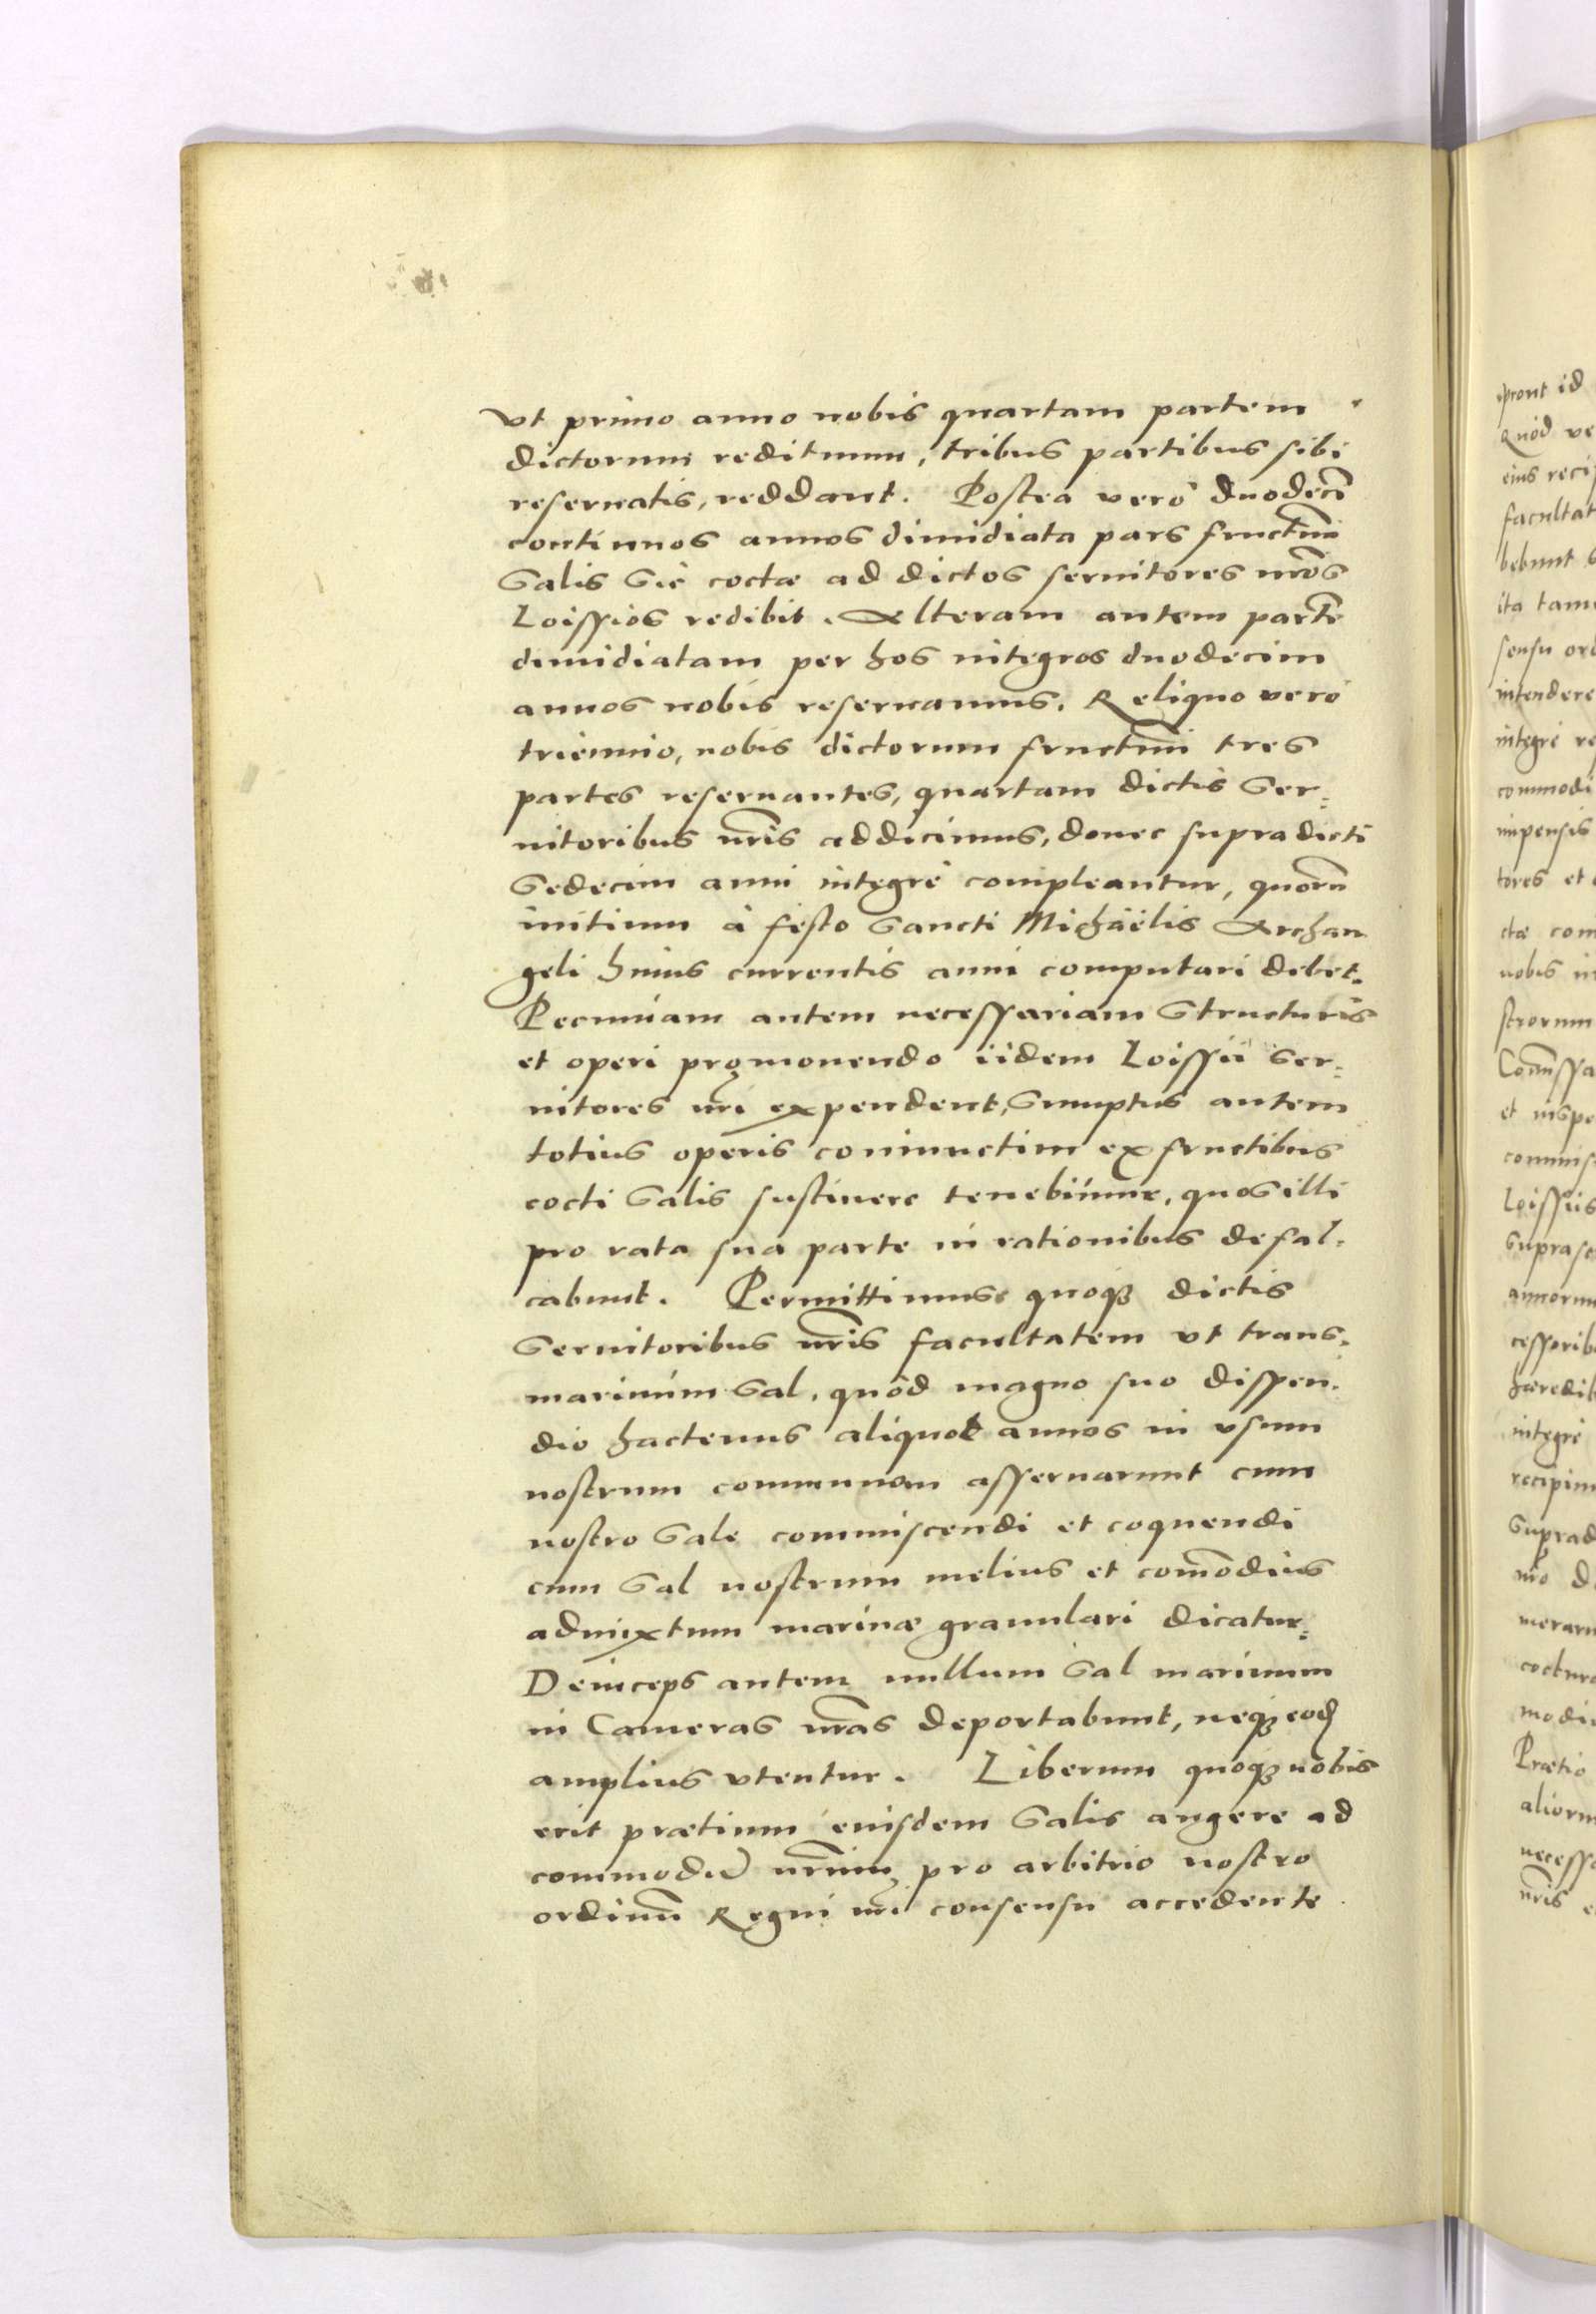 vt primo anno nobis quartam partem
dictorum redituum, tribus partibus sibi
reseruatis, reddant. Postea verò duodecī
continuos annos dimidiata pars fructuū
Salis sic coctæ ad dictos seruitores nr̄os
Loissios redibit. Alteram autem partē
dimidiatam per hos integros duodecim
annos nobis reseruamus. Reliquo verò
triennio, nobis dictorum fructuū tres
partes reseruantes, quartam dictis Ser=
uitoribus nr̄is addicimus, donec supradicti
Sedecim anni integrè compleantur, quorū
initium à festo Sancti Michaëlis Archan
geli huius currentis anni computari debet.
Pecuniam autem necessariam Structuris
et operi promouendo iidem Loissii Ser=
uitores nr̄i expendent, Sumptus autem
totius operis coniunctim ex fructibus
cocti Salis sustinere tenebimur, quos illi
pro rata sua parte in rationibus defal=
cabunt. Permittimus quoqȝ dictis
Seruitoribus nr̄is facultatem vt trans=
marinum Sal, quòd magno suo dispen=
dio hactenus aliquot annos in vsum
nostrum communem asseruarunt cum
nostro Sale commiscendi et coquendi
cum Sal nostrum melius et com̄odius
admixtum marinæ granulari dicatur=
Deinceps autem nullum Sal marinum
in Cameras nr̄as deportabunt, neqȝ eod
amplius vtentur. Liberum quoqȝ nobis
erit prætium eiusdem Salis augere ad
commodū nr̄um pro arbitrio nostro
ordinū Regni nr̄i consensu accedente
prout id
Quòd ve
eius reci
facultat
bebunt
ita tam
sensu ord
intendere
integrè re
commodi
impensis
tores et
ctæ com
nobis in
strorum
Com̄issa
et inspe
commis
Loissiis
Suprasc
annorum
cessorib
hæredib
integrè
recipim
Suprad
mo d
merarū
coctura
modi
Prætio
aliorum
necessa
nr̄is e